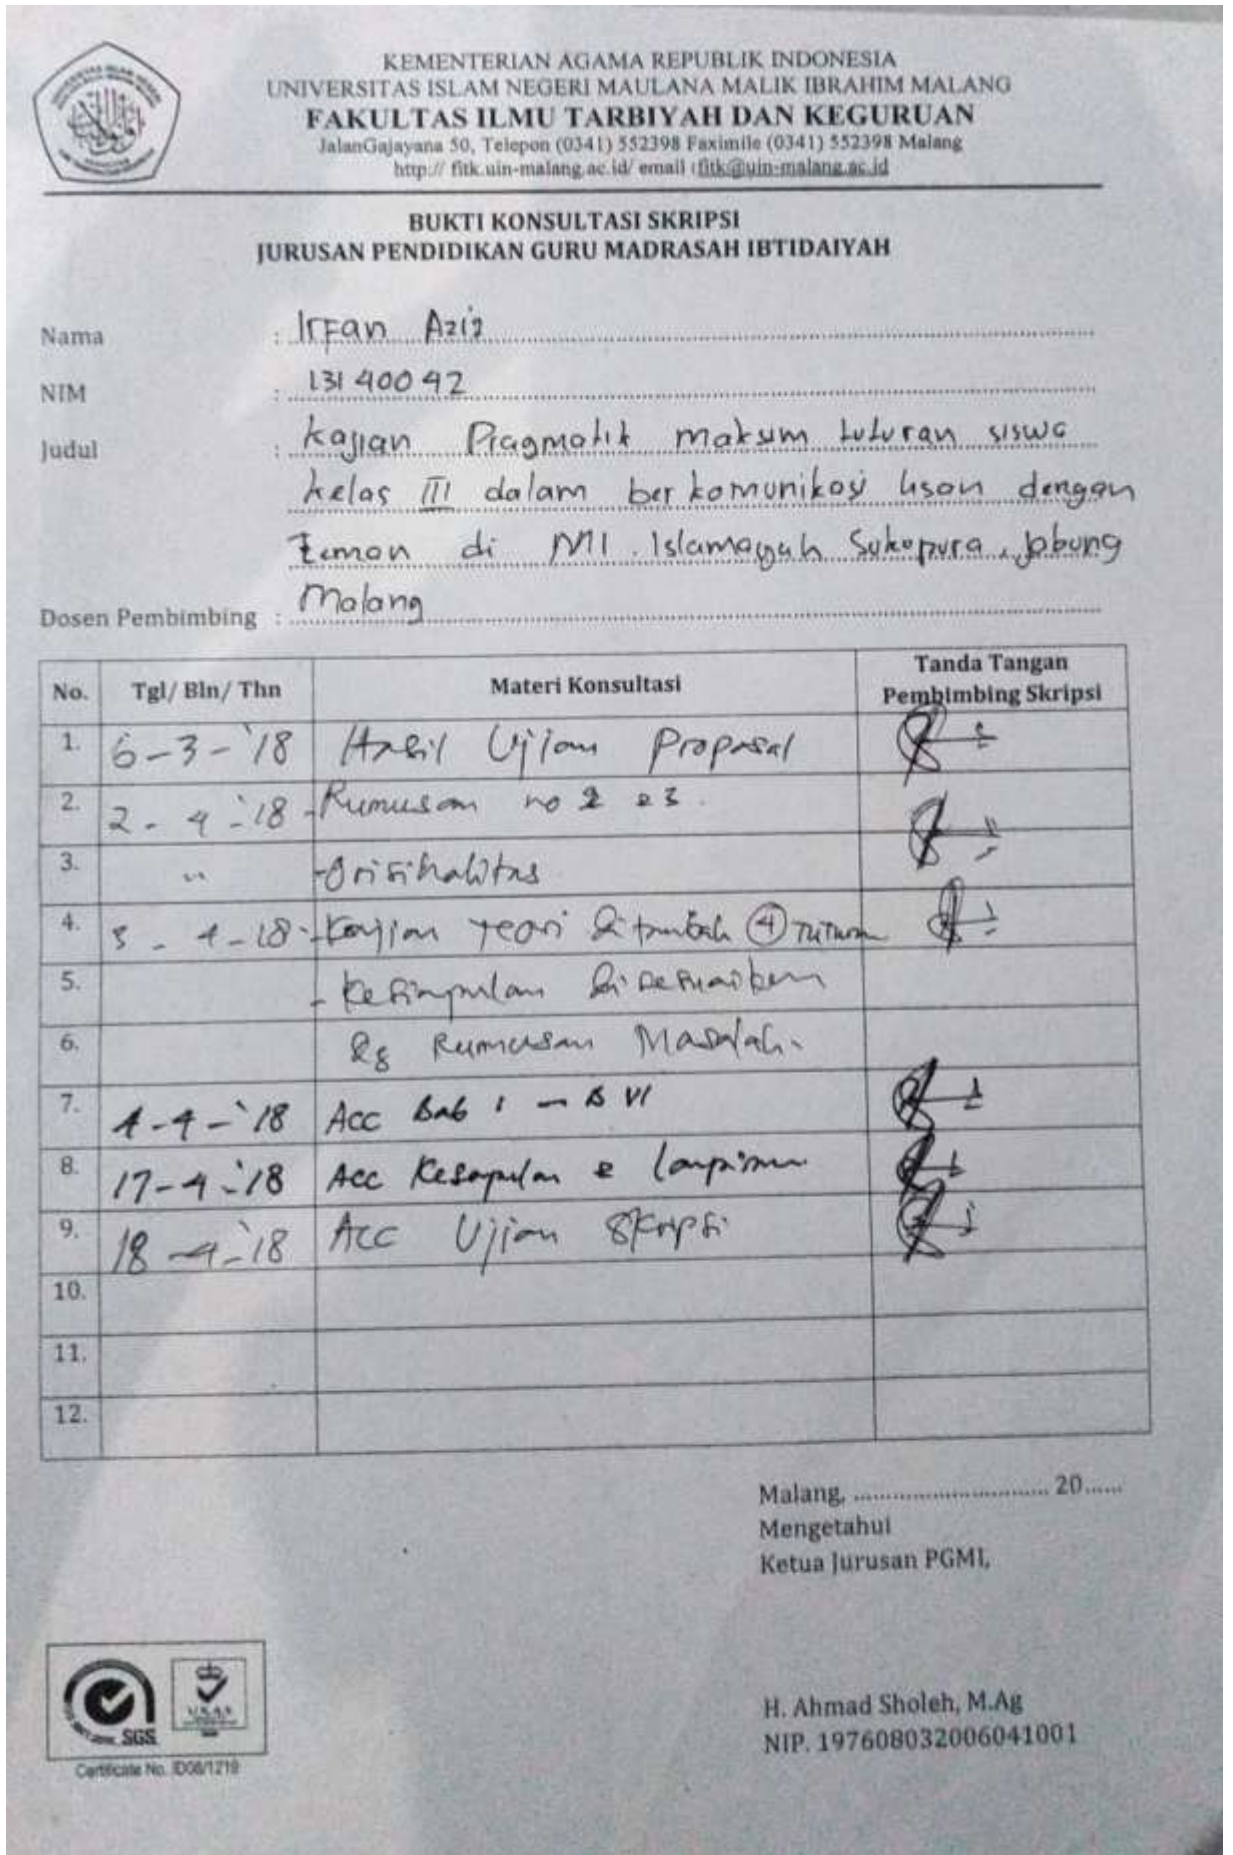 KEMENTERIAN AGAMA REPUBLIK INDONESIA
UNIVERSITAS ISLAM NEGERI MAULANA MALIK IBRAHIM MALANG
FAKULTAS ILMU TARBIYAH DAN KEGURUAN
JalanGajayana 50, Telepon (0341) 552398 Faximile (0341) 552398 Malang
http:// fitk.uin-malang.ac.id/ email : fitk@uin-malang.ac.id
BUKTI KONSULTASI SKRIPSI
JURUSAN PENDIDIKAN GURU MADRASAH IBTIDAIYAH
Nama : Irfan Aziz
NIM : 13140042
Judul : Kajian Pragmatik maksim tuturan siswa
kelas III dalam berkomunikasi lisan dengan
teman di MI Islamayah Sukopura, Jabung
Malang
Dosen Pembimbing :
No. Tgl/ Bln/ Thn Materi Konsultasi Tanda Tangan Pembimbing Skripsi
1. 6-3-'18 Hasil Ujian Proposal
2. 2-4-'18 - Rumusan no 2 & 3.
3. " - Orisinalitas
4. 3-4-18 - Kajian teori ditambah 4
5. - Kesimpulan disesuaikan
6. dg Rumusan Masalah.
7. 4-4-'18 Acc Bab I - B VI
8. 17-4-'18 Acc Kesimpulan & lampiran
9. 18-4-'18 Acc Ujian Skripsi
10.
11.
12.
Malang, .............................. 20......
Mengetahui
Ketua Jurusan PGMI,
H. Ahmad Sholeh, M.Ag
NIP. 197608032006041001
SGS
Certificate No. ID08/1219